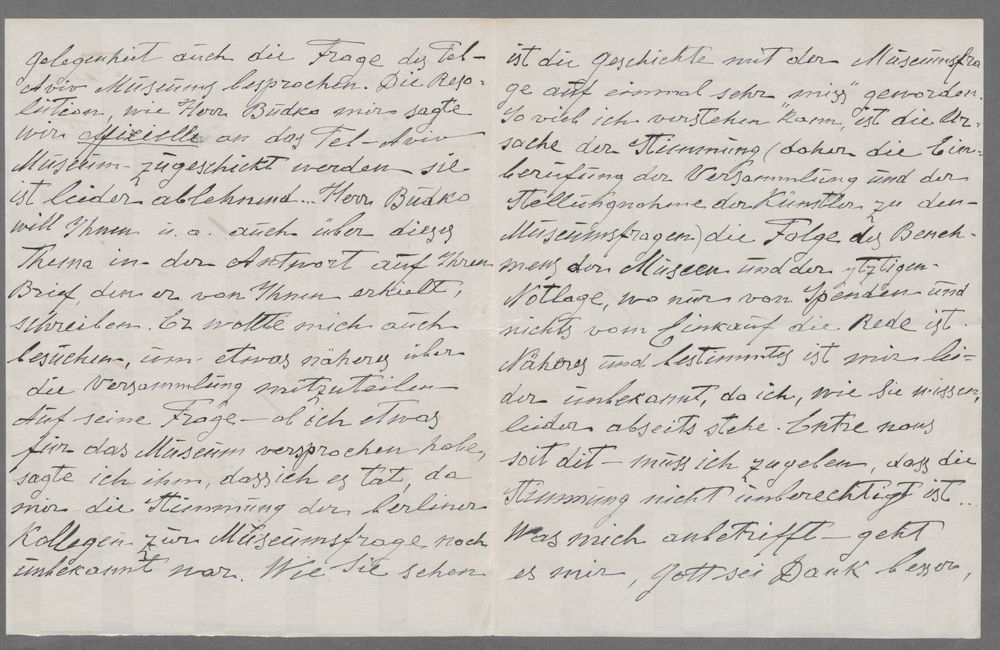 Gelegenheit auch die Frage des Tel-
Aviv Museums besprochen. Die Reso-
lution, wie Herr Budko mir sagte
wir offizielle an das Tel-Aviv
Museum zugeschickt werden sie
ist leider ablehnend... Herr Budko
will Ihnen u. a. auch über dieses
Thema in der Antwort auf Ihren
Brief, den er von Ihnen erhielt,
schreiben. Er wollte mich auch
besuchen, um etwas näheres über
die Versammlung mitzuteilen
Auf seine Frage – ob ich etwas
für das Museum versprochen habe,
sagte ich ihm, dass ich es tat, da
mir die Stimmung der berliner
Kollegen zur Museumsfrage noch
unbekannt war. Wie Sie sehen
ist die Geschichte mit der Museumsfra
ge auf einmal sehr "miss" geworden.
So viel ich verstehen kann, ist die Ur-
sache der Stimmung (daher die Ein-
berufung der Versammlung und der
Stellungnahme der Künstler zu den
Museumsfragen) die Folge des Beneh-
mens der Museen und der jtztigen
Notlage, wo nur von Spenden und
nichts vom Einkauf die Rede ist.
Näheres und bestimmtes ist mir lei-
der unbekannt, da ich, wie Sie wissen,
leider abseits stehe. Entre nous
soit dit – muss ich zugeben, dass die
Stimmung nicht unberechtigt ist...
Was mich anbetrifft – geht
es mir, Gott sei Dank besser,